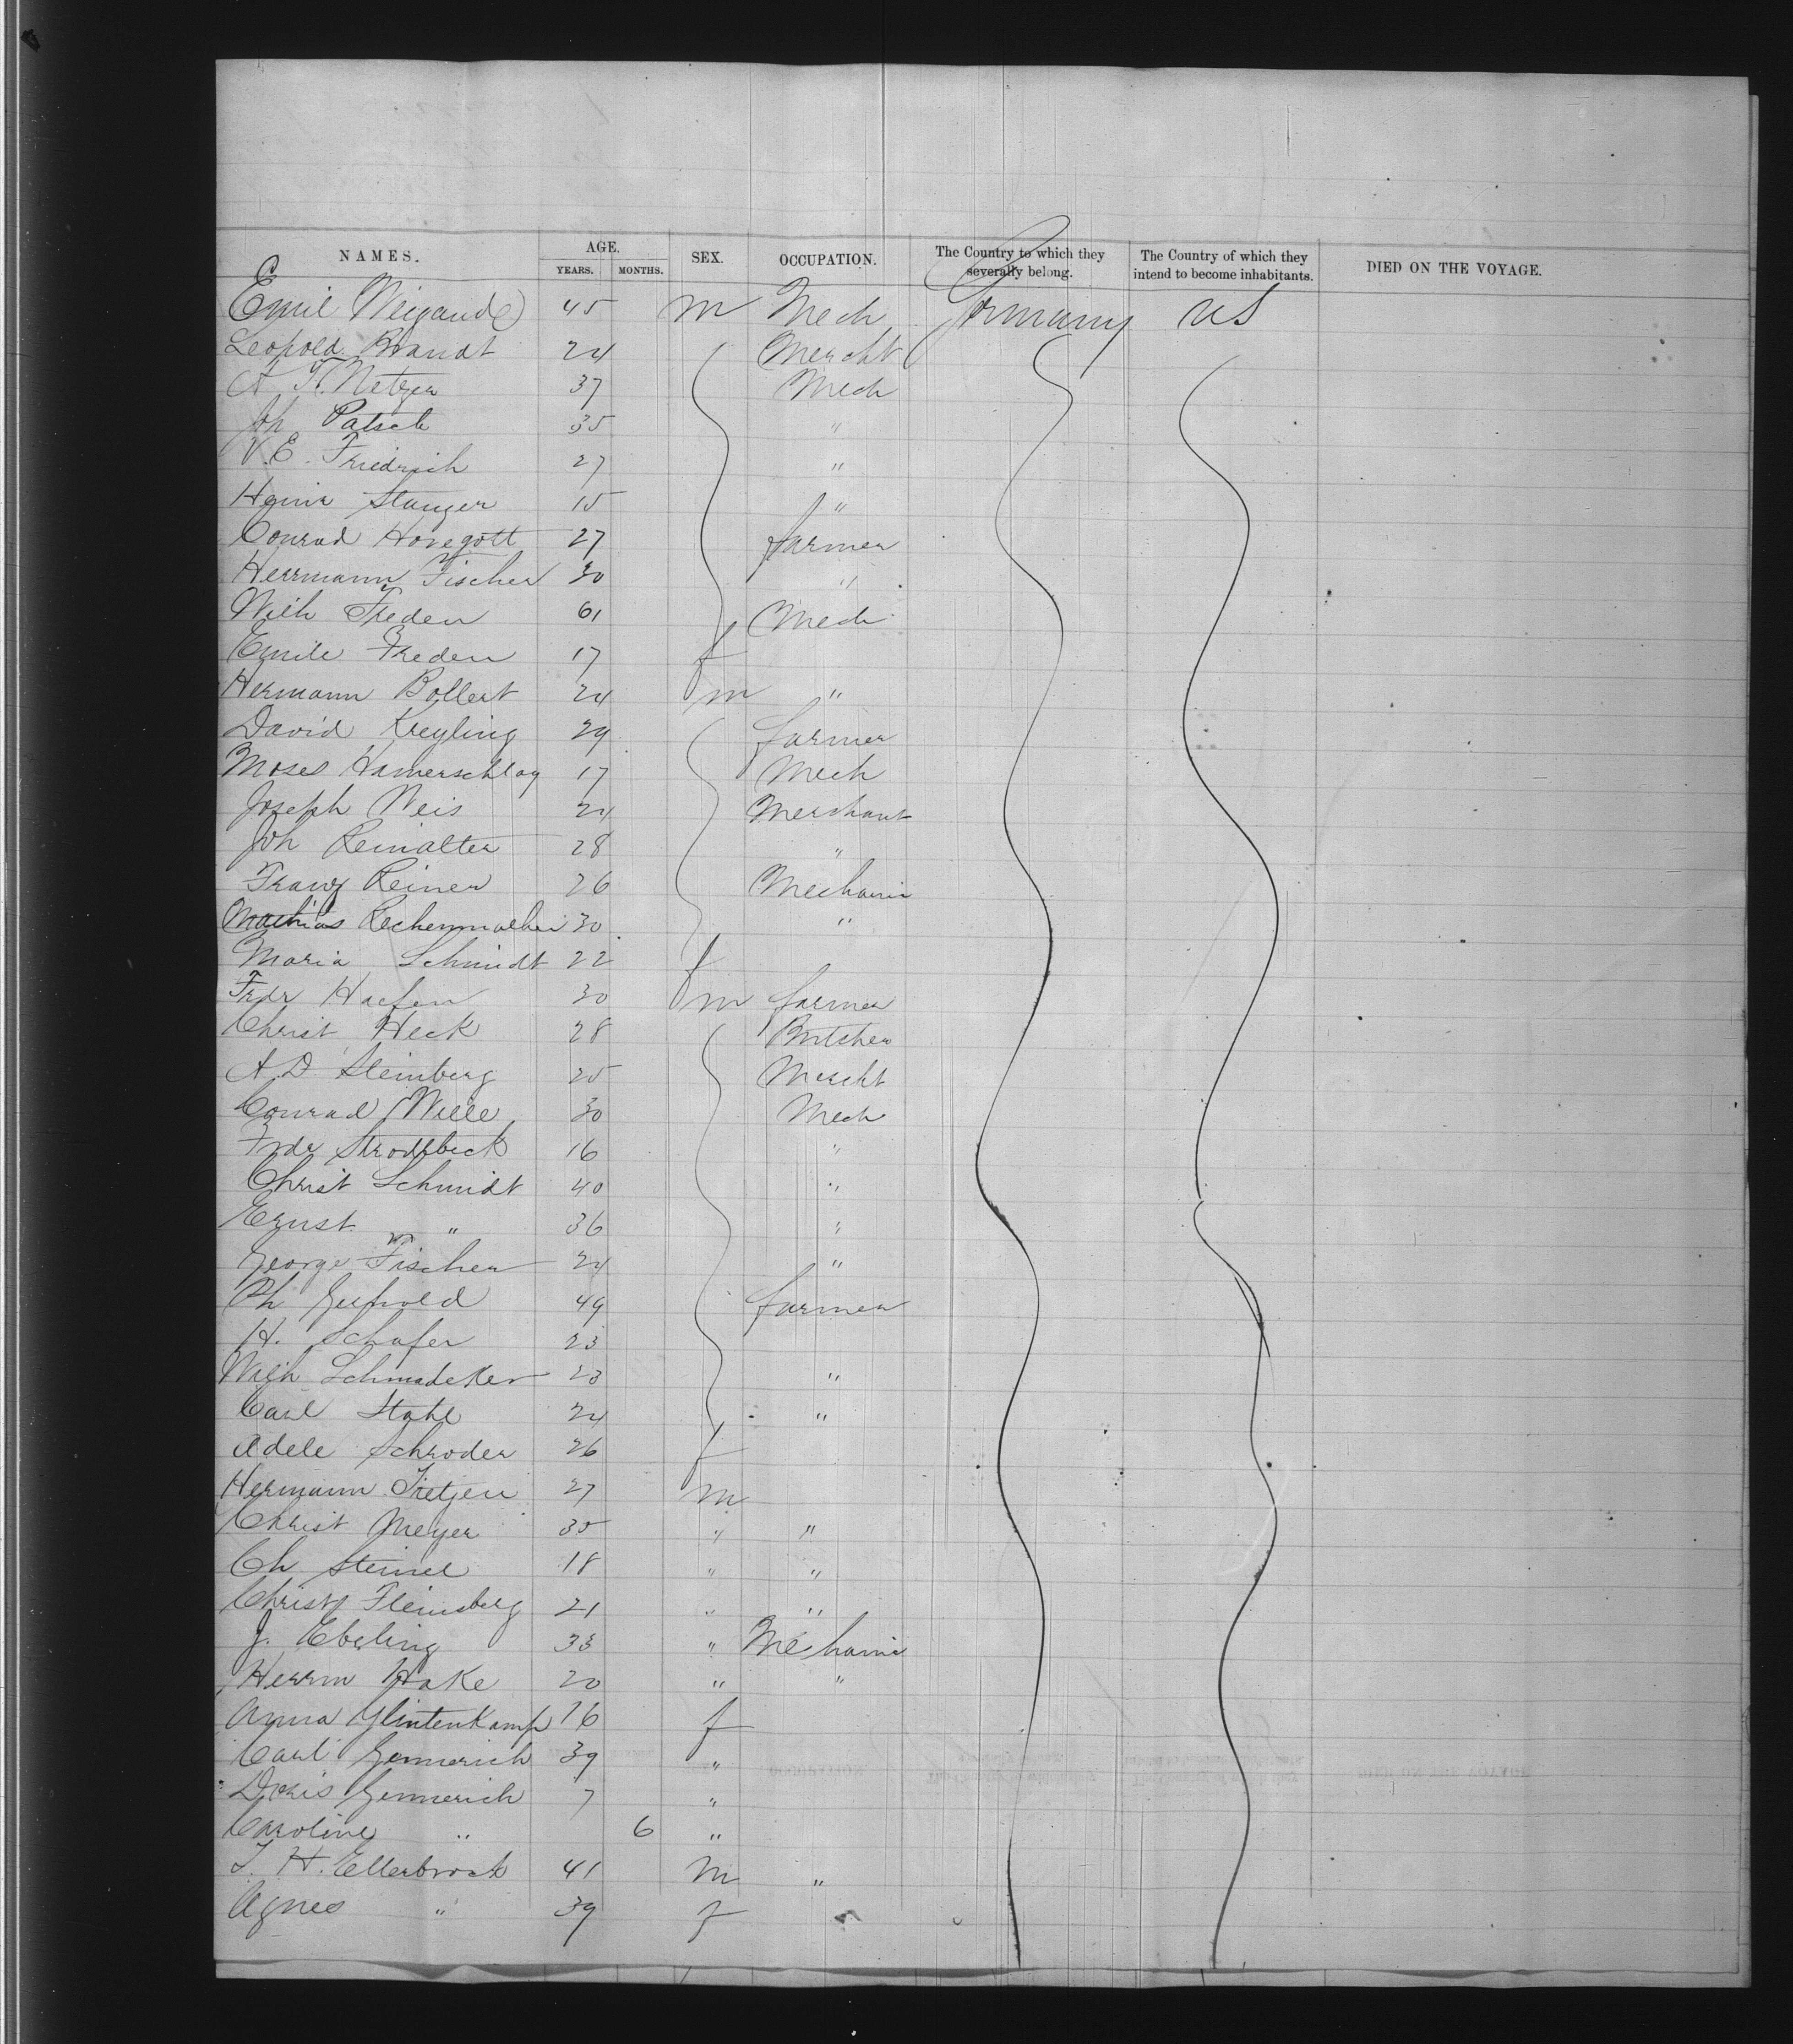 NAMES. AGE. SEX. OCCUPATION. The Country to which they severally belong. The Country of which they intend to become inhabitants. DIED ON THE VOYAGE.
YEARS. MONTHS.
Emil Weigand 45 m Mech Germany US
Leopold Brandt 24 Mercht
A Metzger 37 Mech
Joh Patsch 35 "
V. E. Friedrich 27 "
Stanger 15 "
Conrad Horegott 27 farmer
Herrmann Fischer 30 "
Wilh Freden 61 Mech
Emile Freden 17 f
Hermann Bollert 24 m "
David Kreyling 29 farmer
Moses Hamerschlag 17 Mech
Joseph Weis 24 Merchant
Joh Reinalter 28 "
Franz Reiner 26 Mechanic
Mathias Rechenmacher 30 "
Maria Schmidt 22 f
Fredr Haefen 30 m farmer
Christ Heck 28 Butcher
A. D. Steinberg 25 Mercht
Conrad Wille 30 Mech
Fredr Strodtbeck 16 "
Christ Schmidt 40 "
Ernst " 36 "
George Fischer 24 "
Ph 49 farmer
H. Schafer 23
Wilh Schmadeker 23 "
Carl Stahl 24 "
Adele Schroder 26 f
Hermann Tietjen 27 m
Christ Meyer 35 " "
Ch Steinel 18 " "
Christ Fleinsberg 21 " "
J. Ebeling 33 " Mechanic
Herrm Hake 20 " "
Anna Glintenkamp 16 f
Carl Gemmerich 39 "
Doris Gemmerich 7 "
Caroline " 6 "
T. H. Ellerbrock 41 m "
Agnes " 39 f